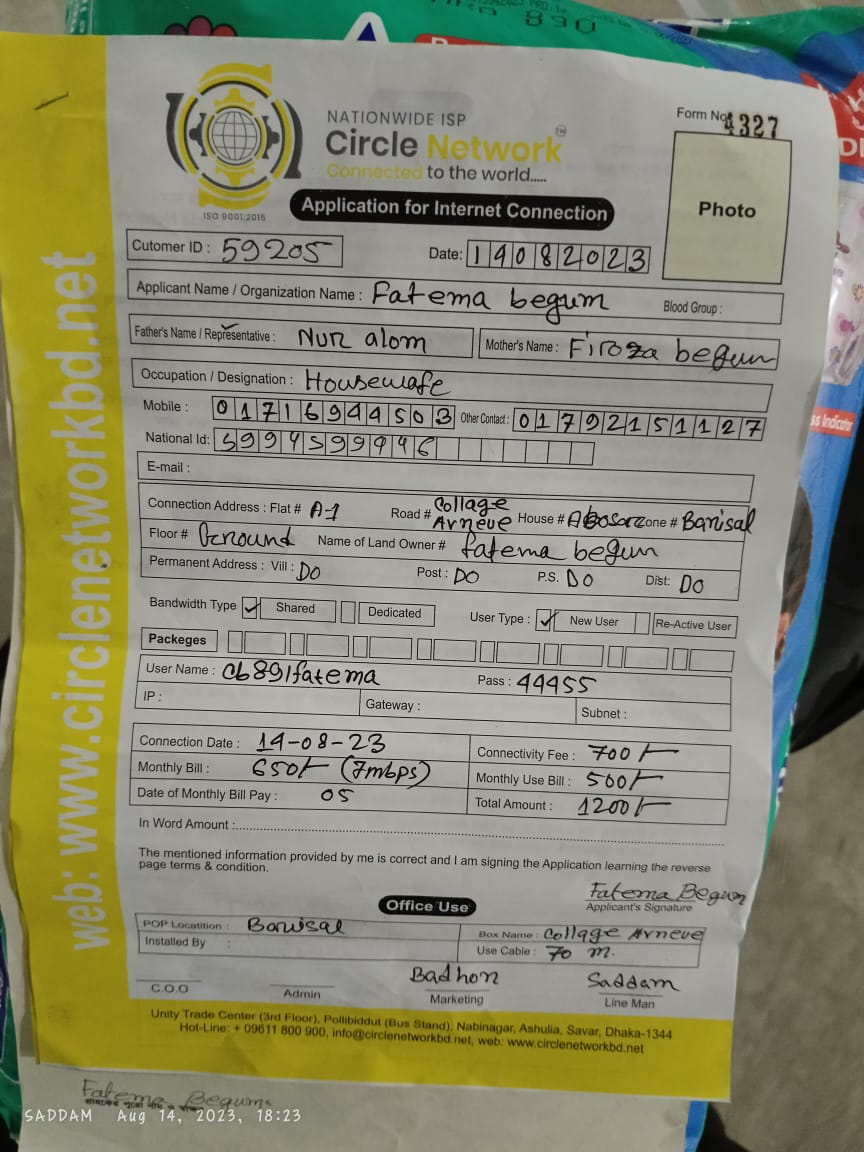 890
NATIONWIDE ISP
Circle Network
Connected to the world.....
ISO 9001:2015
Form No 4327
Photo
Application for Internet Connection
Cutomer ID : 59205
Date: 14082023
Applicant Name / Organization Name : Fatema begum
Blood Group :
Father's Name / Representative : Nur alom
Mother's Name : Firoza begum
Occupation / Designation : Housewafe
Mobile : 01716944503 Other Contact : 01792151127
National Id: 5994599946
E-mail :
Connection Address : Flat # A-1 Road # Collage Arneve House # Abosar Zone # Barisal
Floor # Ground Name of Land Owner # fatema begum
Permanent Address : Vill : DO Post : DO P.S. DO Dist: DO
Bandwidth Type Shared Dedicated User Type : New User Re-Active User
Packeges
User Name : cb891fatema Pass : 44455
IP : Gateway : Subnet :
Connection Date : 14-08-23 Connectivity Fee : 700/-
Monthly Bill : 650/- (7mbps) Monthly Use Bill : 500/-
Date of Monthly Bill Pay : 05 Total Amount : 1200/-
In Word Amount :
The mentioned information provided by me is correct and I am signing the Application learning the reverse
page terms & condition.
Fatema Begum
Applicant's Signature
Office Use
POP Locatition : Barisal Box Name : Collage Arneve
Installed By : Use Cable : 70 m.
Badhon Saddam
C.O.O Admin Marketing Line Man
Unity Trade Center (3rd Floor), Pollibiddut (Bus Stand), Nabinagar, Ashulia, Savar, Dhaka-1344
Hot-Line: + 09611 800 900, info@circlenetworkbd.net, web: www.circlenetworkbd.net
web: www.circlenetworkbd.net
Fatema Begum
SADDAM Aug 14, 2023, 18:23